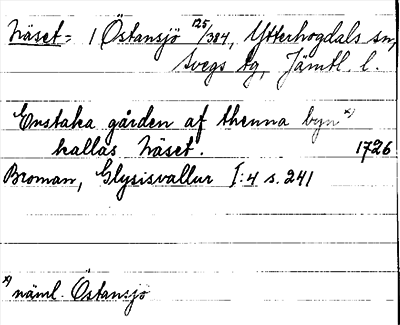 Näset = i Östansjö 125/384, Ytterhogdals sn,
Svegs tg, Jämtl. l.
Enstaka gården af thenna byn x)
kallas Näset. 1726
Broman, Glysisvallur I:4 s. 241
x) näml. Östansjö